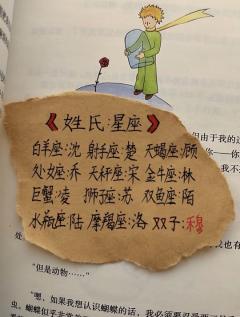 《姓氏:星座》
但由于我的这
白羊座:沈 射手座:楚 天蝎座:顾
处女座:乔 天秤座:宋 金牛座:林
巨蟹:凌 狮子座:苏 双鱼座:陌
水瓶座:陆 摩羯座:洛 双子:穆
处
我也有
“但是动物……”
“嗯，如果我想认识蝴蝶的话，我必须要忍受两
虫。蝴蝶似乎非常